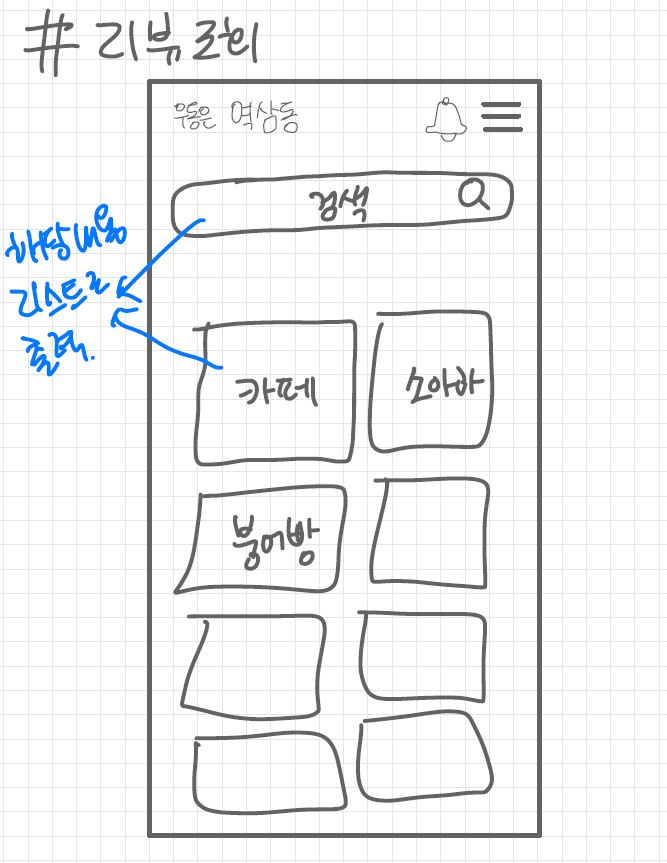 # 리뷰 로비
우동은 역삼동
검색
해당 내용
리스트로
출력.
카페
붕어빵